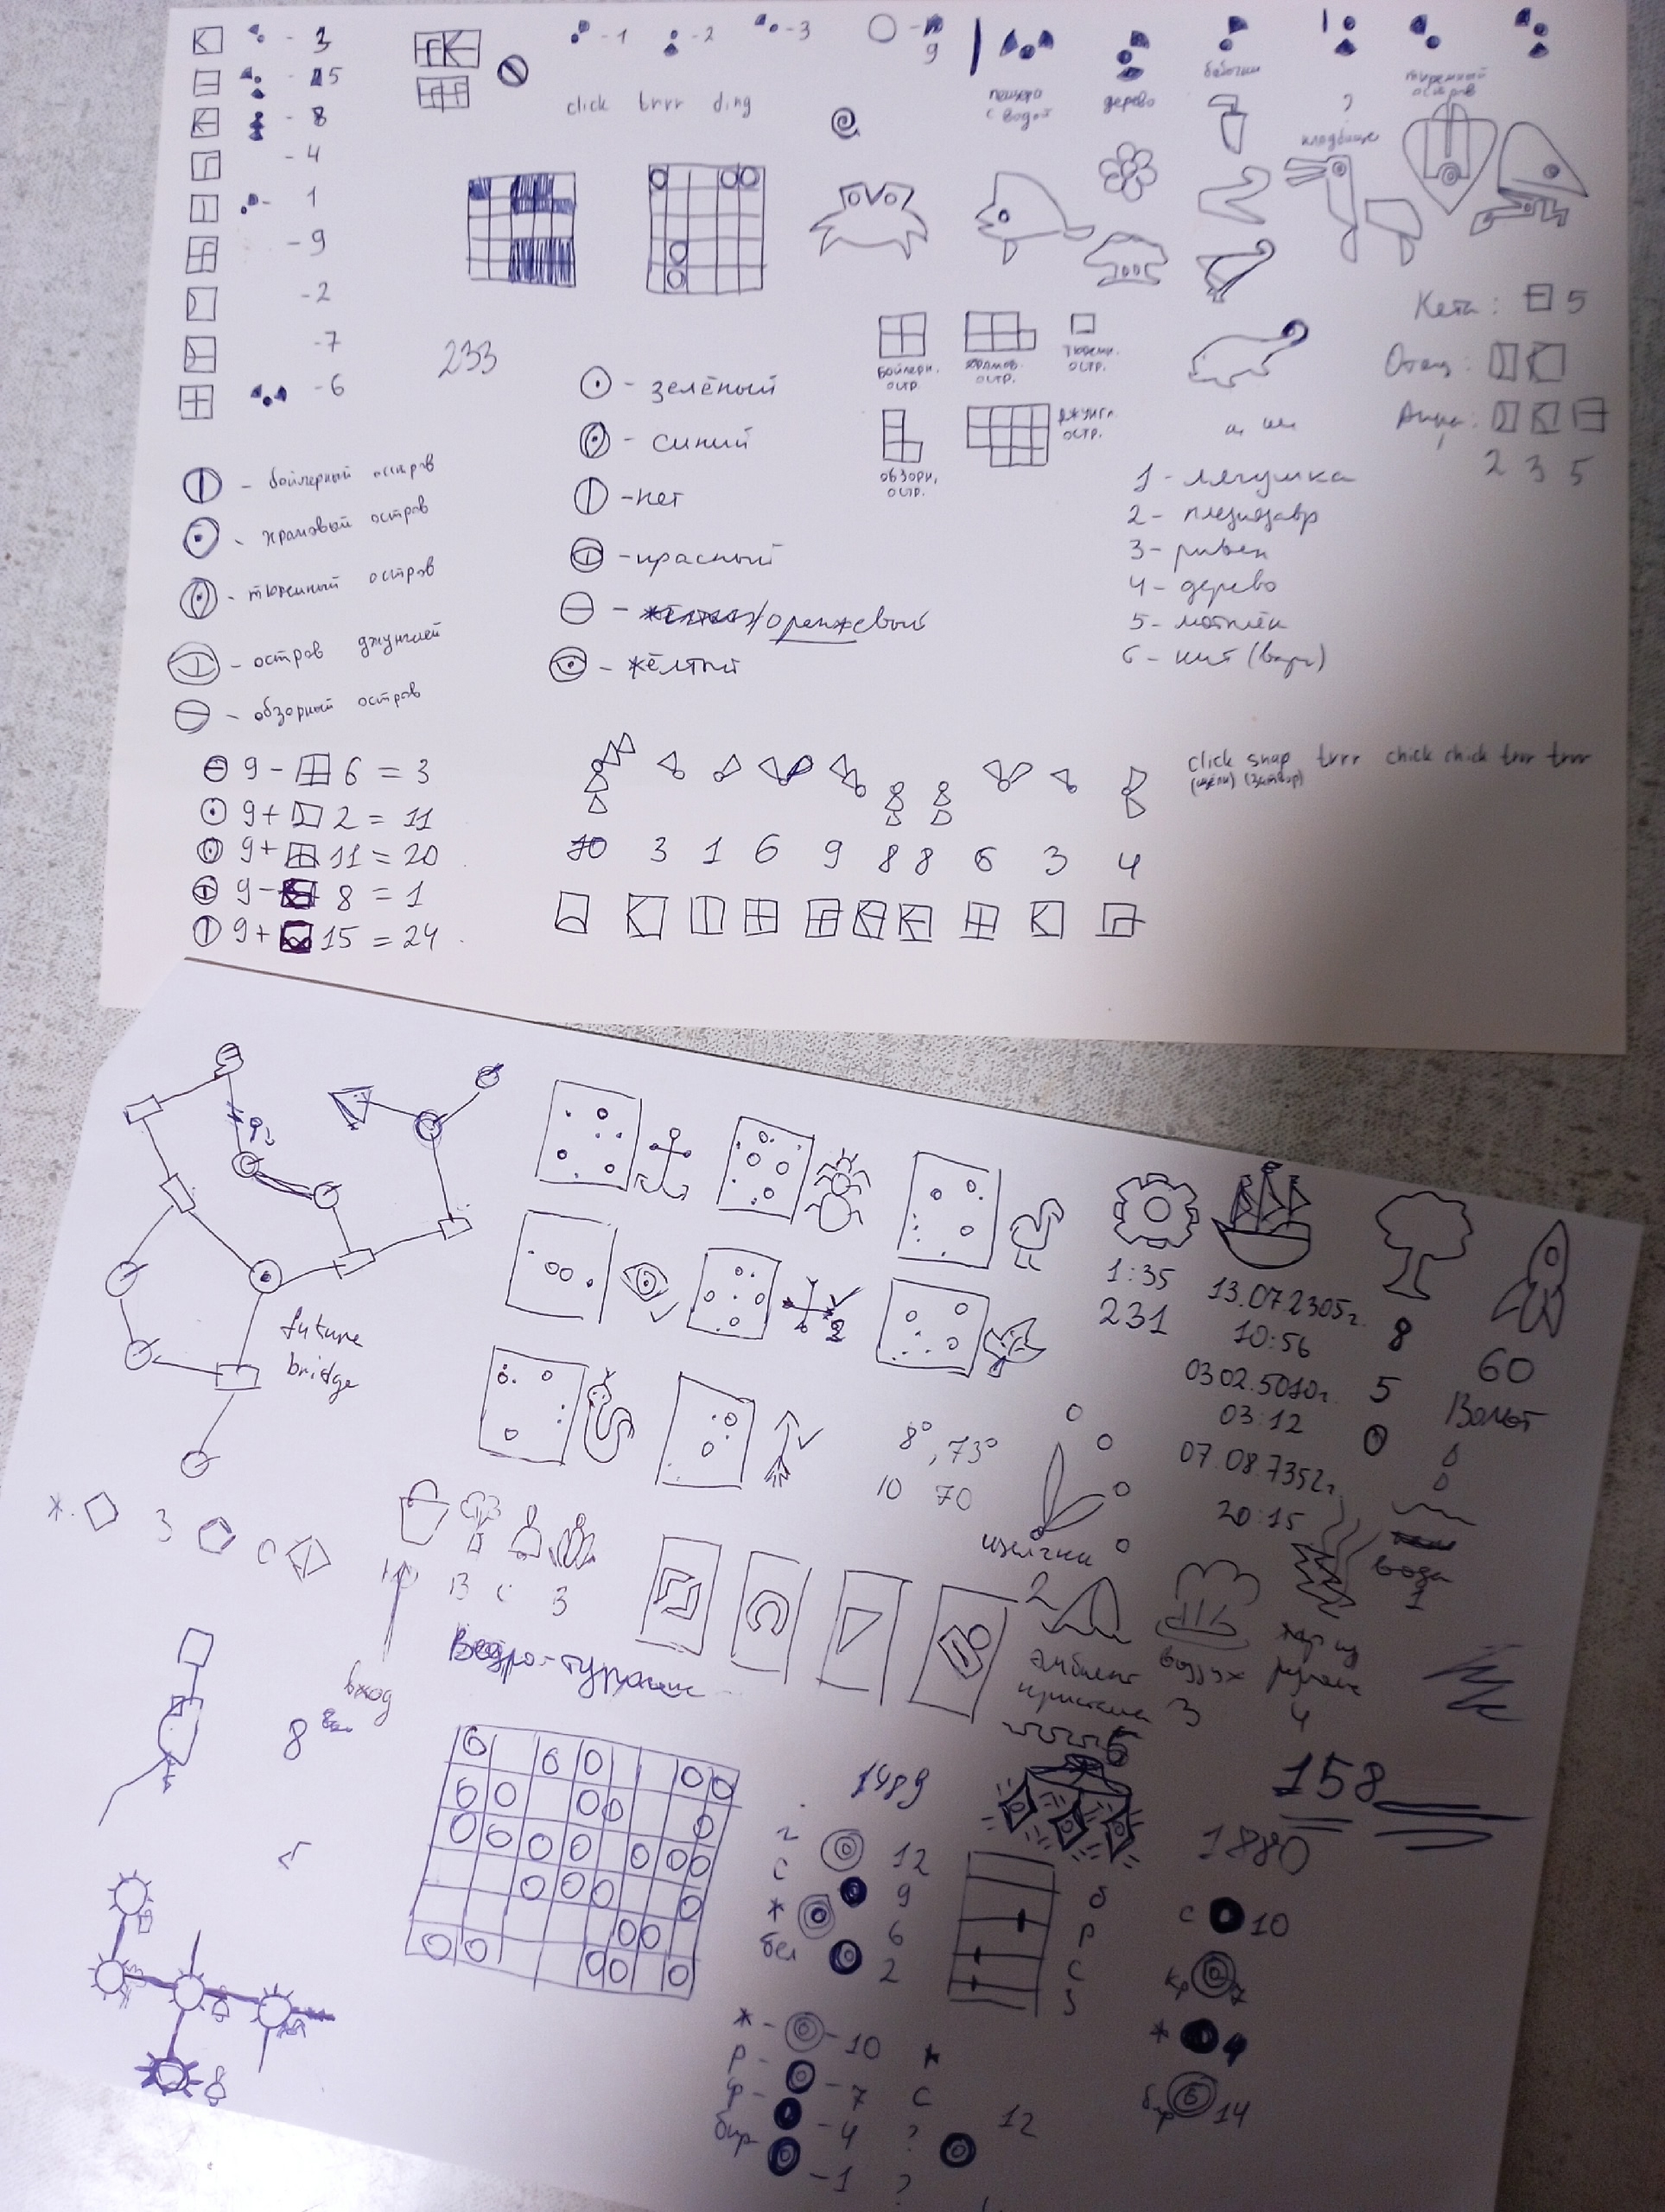 - 3
- 5
- 8
- 4
- 1
- 9
- 2
- 7
- 6
- 1
- 2
- 3
- 9
click trrr ding
пещера
с водой
дерево
бабочки
?
кладбище
тюремный
остров
233
- зелёный
- синий
- нет
- красный
/оранжевый
- жёлтый
бойлерн.
остр.
храмов.
остр.
тюремн.
остр.
обзорн.
остр.
джунгл.
остр.
Кета: 5
Отец:
2 3 5
1 - лягушка
2 - плезиозавр
4 - дерево
5 - мотылёк
6 - кит
- бойлерный остров
- храмовый остров
- тюремный остров
- остров джунглей
- обзорный остров
9 - 6 = 3
9 + 2 = 11
9 + 11 = 20
9 - 8 = 1
9 + 15 = 24
10 3 1 6 9 8 8 6 3 4
click snap trrr chick chick trrr trrr
(щелч) (затвор)
future
bridge
1:35
231
13.07.2305г.
10:56
03.02.5010г.
03:12
07.08.7352г.
20:15
8
5
0
60
Вольт
8°, 73°
10 70
щелчки
2
вода
1
ж. 3 с
В с 3
вход
8
воздух
3
жар из
4
5
1489
158
1880
г 12
с 9
ж 6
бел 2
б
р
с
з
с 10
кр 7
ж 4
бир 14
ж - 10 ж
р - 7 с
ф - 4 ?
бир - 1 ?
12